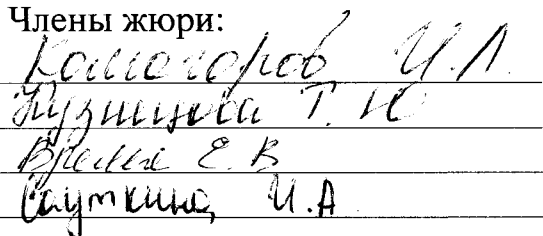 Члены жюри:
Комогоров И.Л.
Кузнецова Т. Ю
Время Е. В
Сауткина И.А